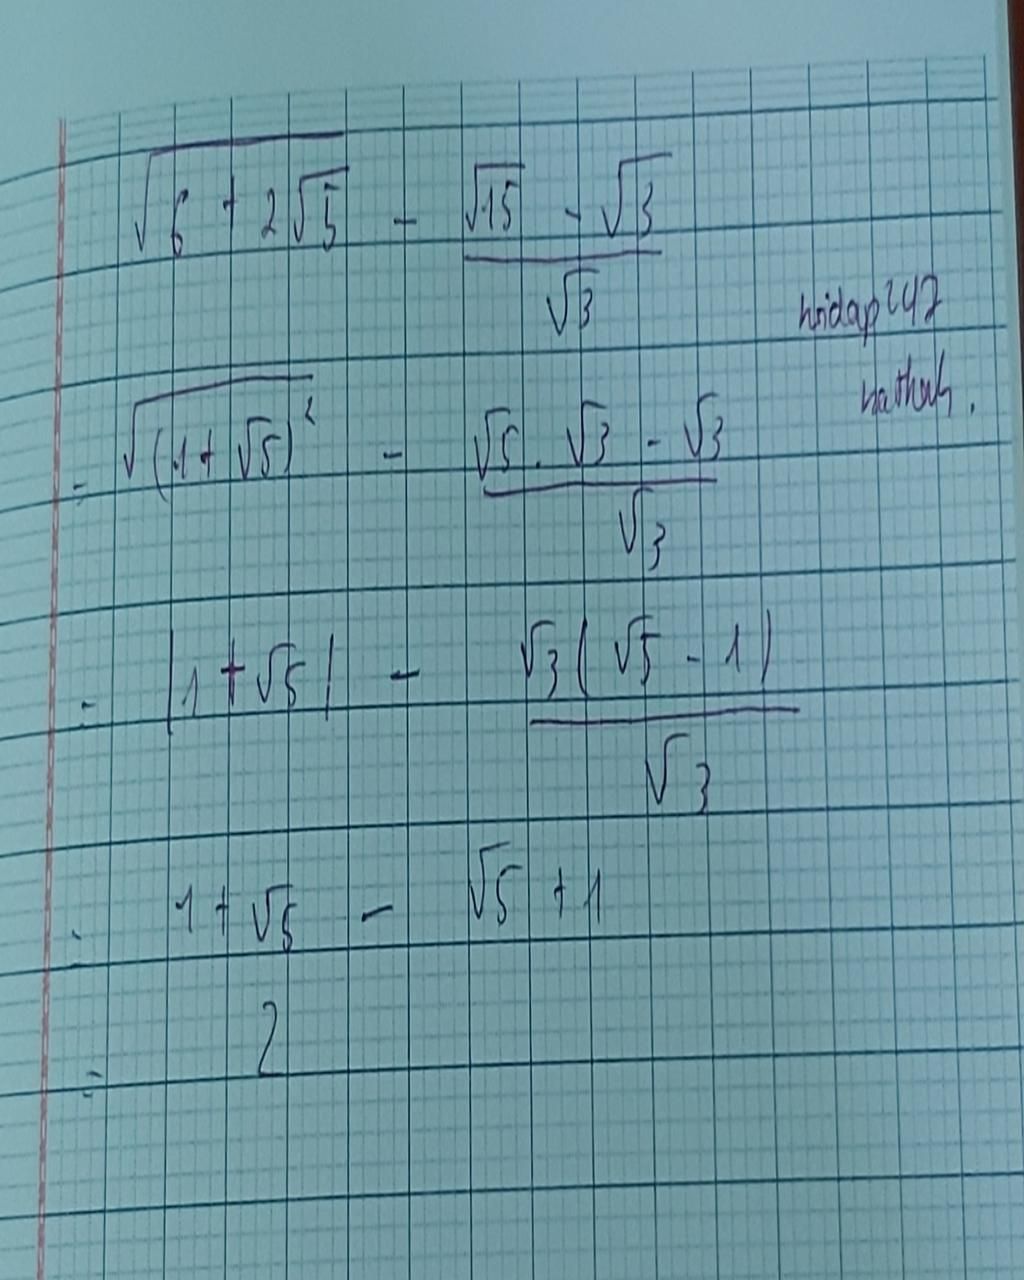 √(6 + 2√5) - (√15 - √3)/√3
hoidap247
= √((1 + √5)²) - (√5 . √3 - √3)/√3
= |1 + √5| - √3(√5 - 1)/√3
= 1 + √5 - √5 + 1
= 2